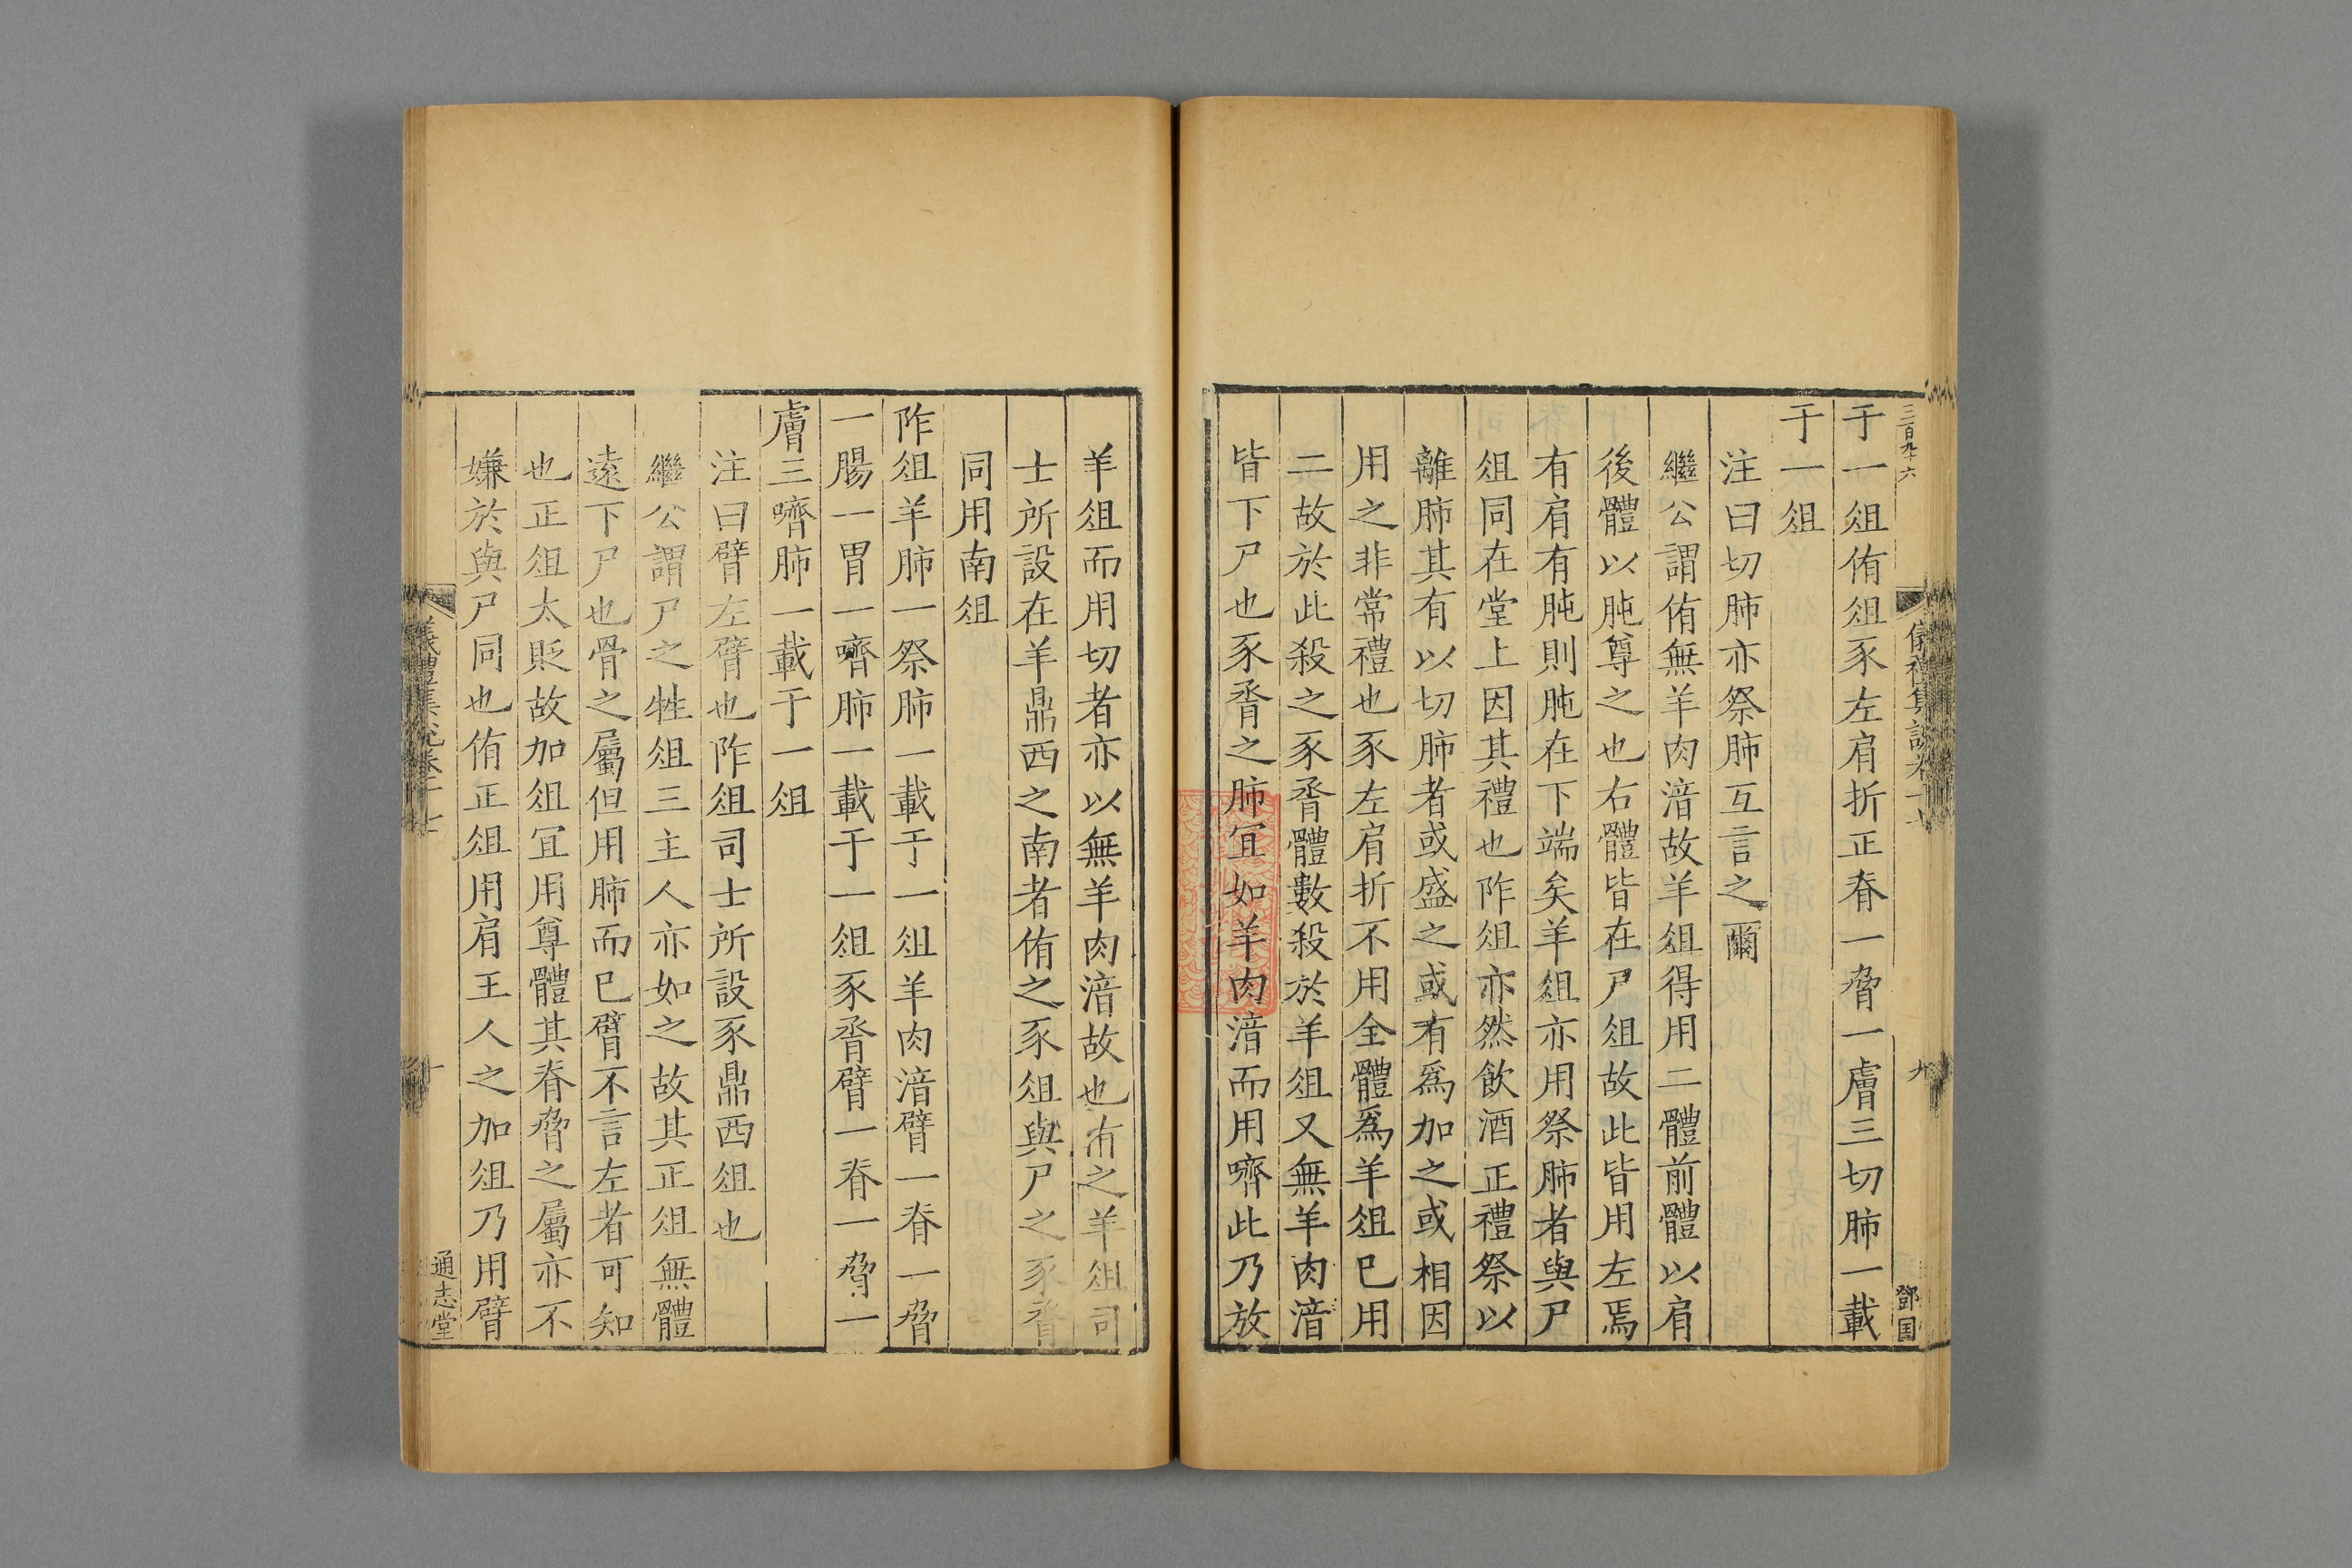 三百九十六
于一俎侑俎豕左肩折正脊一脅一膚三切肺一載
于一俎
注曰切肺亦祭肺互言之爾
繼公謂侑無羊肉湇故羊俎得用二體前體以肩
後體以肫尊之也右體皆在尸俎故此皆用左焉
有肩有肫則肫在下端矣羊俎亦用祭肺者與尸
俎同在堂上因其禮也阼俎亦然飲酒正禮祭以
離肺其有以切肺者或盛之或有爲加之或相因
用之非常禮也豕左肩折不用全體爲羊俎巳用
二故於此殺之豕脀體數殺於羊俎又無羊肉湇
皆下尸也豕脀之肺冝如羊肉湇而用嚌此乃放
儀禮集說卷十七
九
鄧国
羊俎而用切者亦以無羊肉湇故也侑之羊俎司
士所設在羊鼎西之南者侑之豕俎與尸之豕脀
同用南俎
阼俎羊肺一祭肺一載于一俎羊肉湇臂一脊一脅
一腸一胃一嚌肺一載于一俎豕脀臂一脊一脅一
膚三嚌肺一載于一俎
注曰臂左臂也阼俎司士所設豕鼎西俎也
繼公謂尸之牲俎三主人亦如之故其正俎無體
遠下尸也骨之屬但用肺而巳臂不言左者可知
也正俎太貶故加俎冝用尊體其脊脅之屬亦不
嫌於與尸同也侑正俎用肩王人之加俎乃用臂
儀禮集說卷十七
十
通志堂